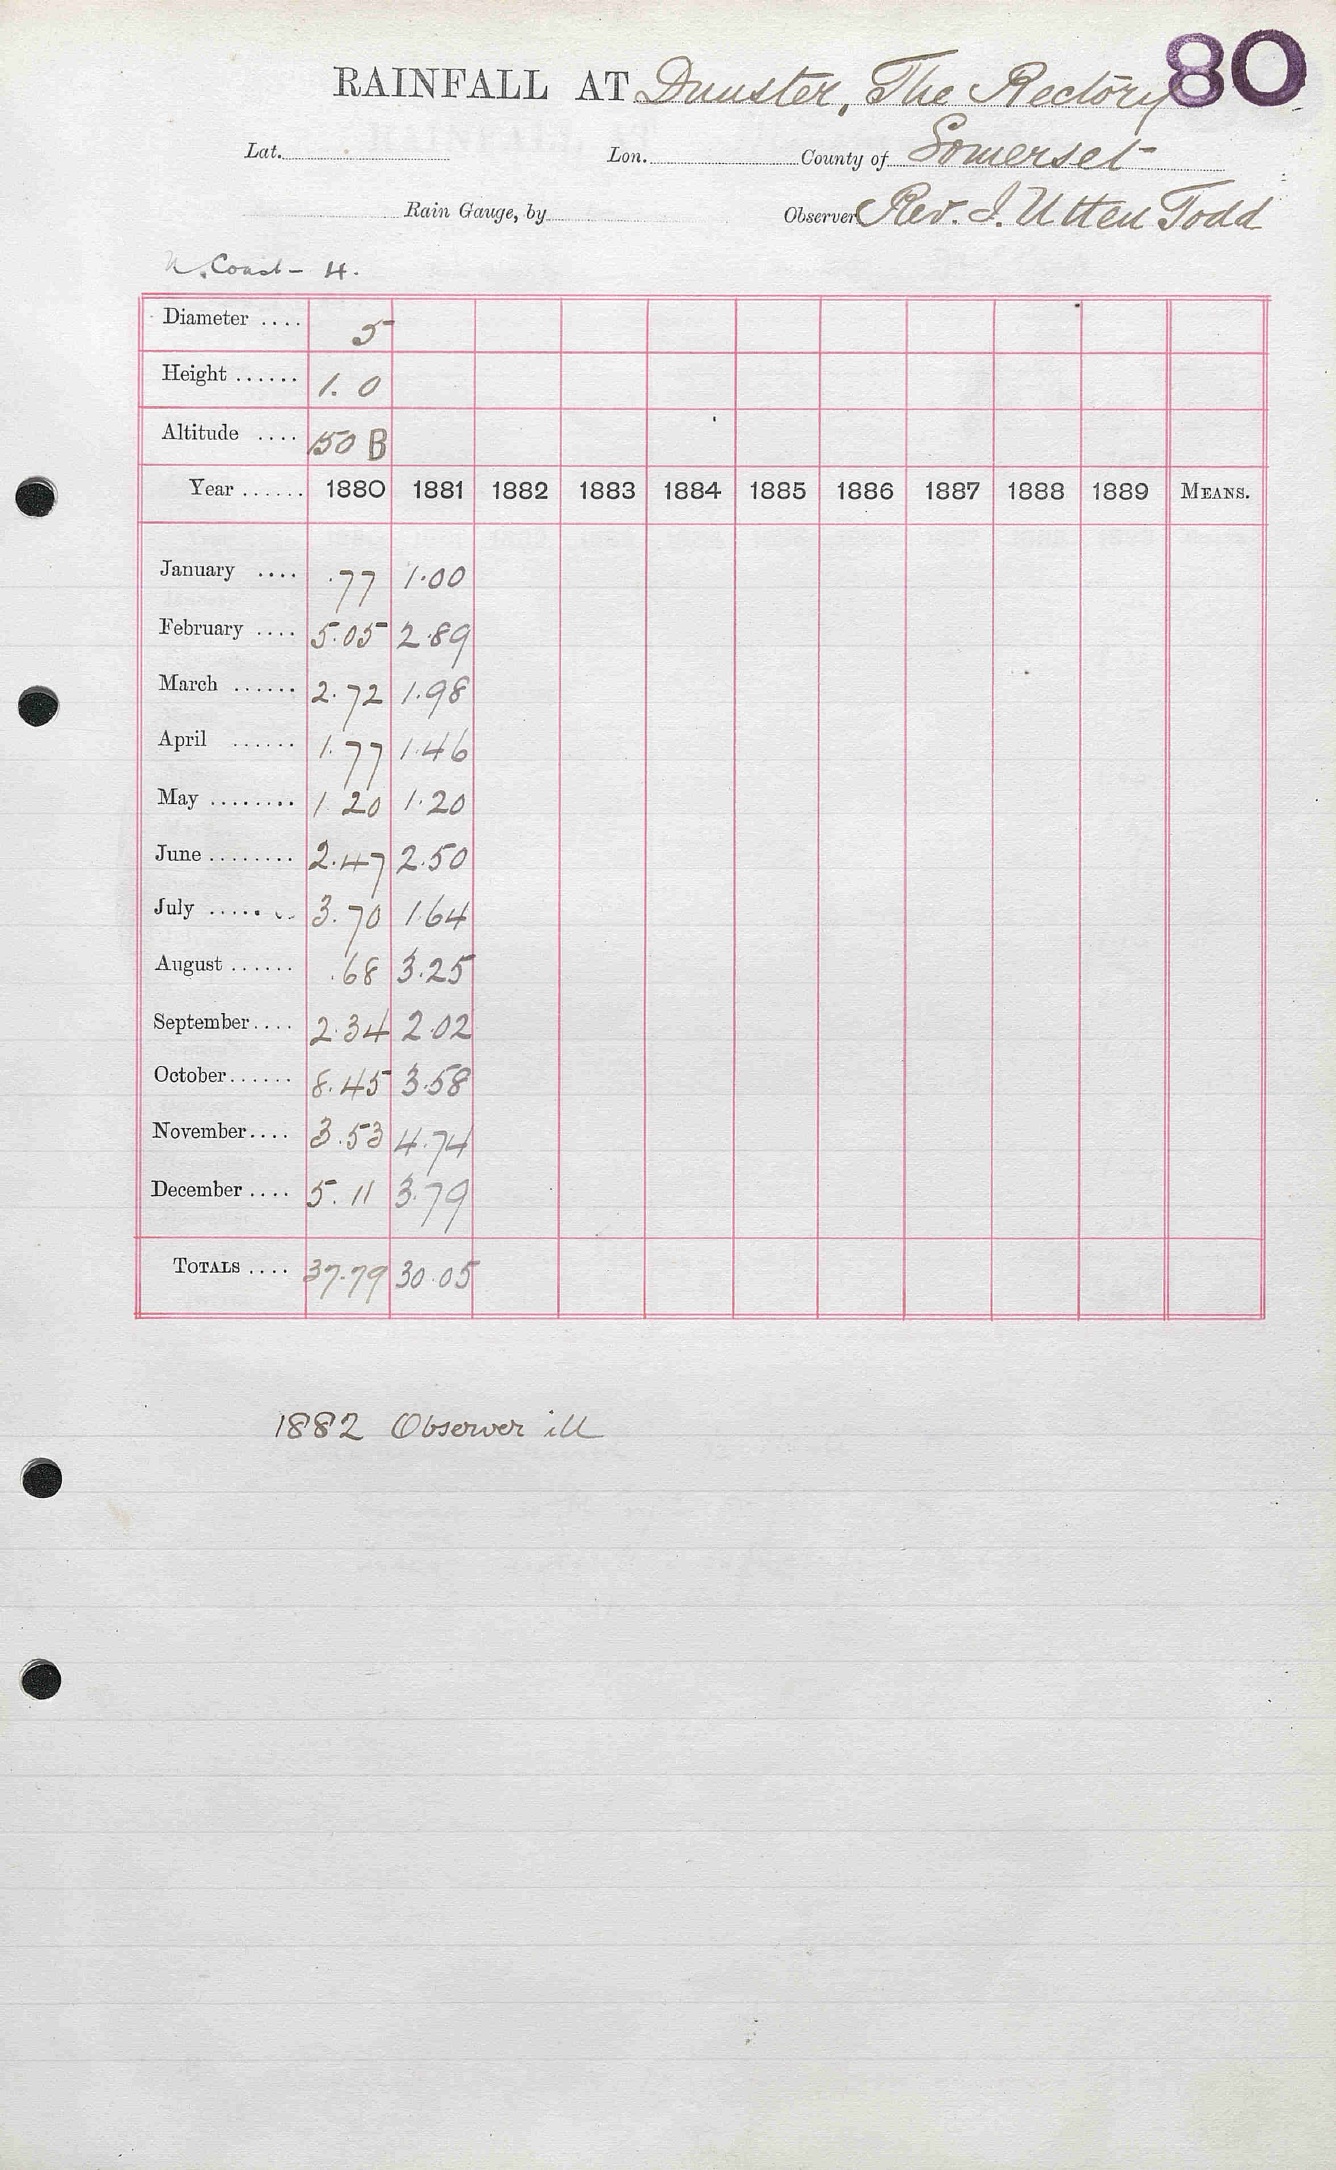 80
RAINFALL AT Dunster, The Rectory
Lat. Lon. County of Somerset
Rain Gauge, by Observer Rev. J. Utten Todd
N. Coast - 4.
Diameter .... 5
Height ...... 1. 0
Altitude .... 150 B
Year ...... 1880 1881 1882 1883 1884 1885 1886 1887 1888 1889 MEANS.
January .... .77 1.00
February .... 5.05 2.89
March ...... 2.72 1.98
April ...... 1.77 1.46
May ........ 1.20 1.20
June ........ 2.47 2.50
July ....... 3.70 1.64
August ...... .68 3.25
September.... 2.34 2.02
October...... 8.45 3.58
November.... 3.53 4.74
December .... 5.11 3.79
TOTALS .... 37.79 30.05
1882 Observer ill